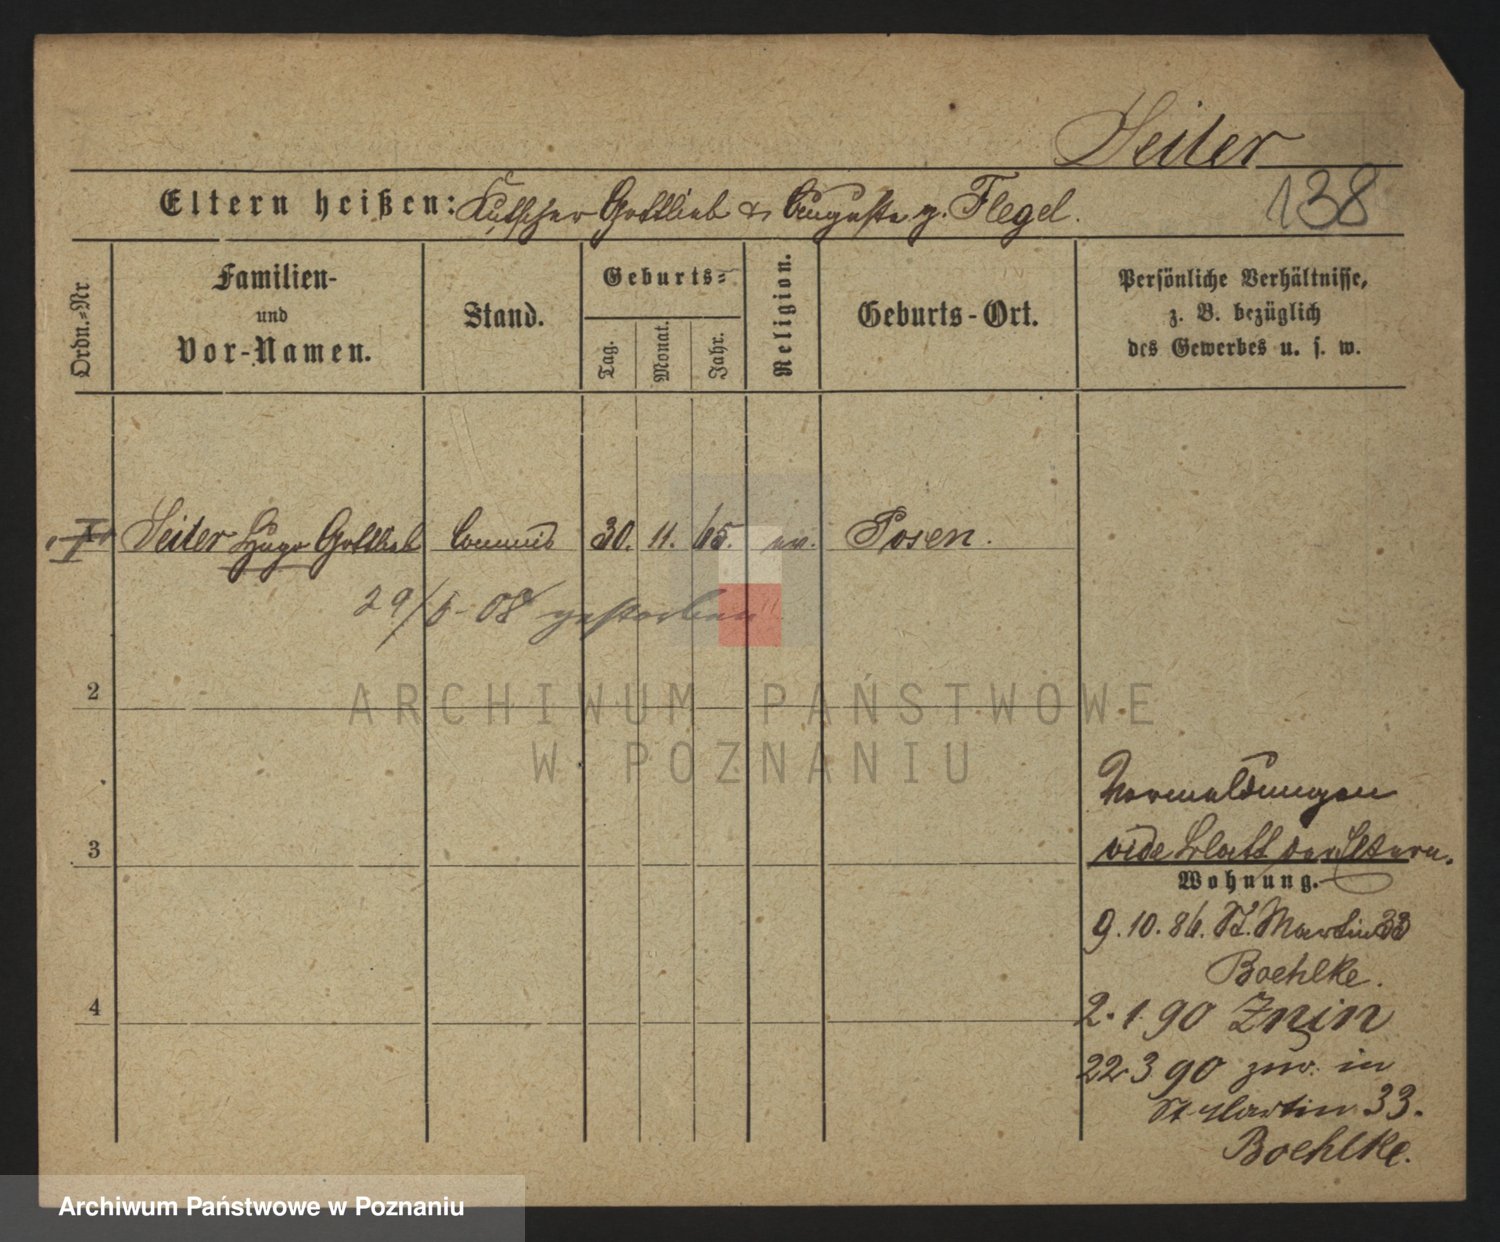 Seiler
Eltern heißen: Kutscher Gottlieb & Auguste g. Flegel.
138
Ordn.-Nr
Familien-
und
Vor-Namen.
Stand.
Geburts-
Tag.
Monat.
Jahr.
Religion.
Geburts-Ort.
Persönliche Verhältnisse,
z. B. bezüglich
des Gewerbes u. s. w.
Seiler Hugo Gottlieb Commis 30. 11. 65. ev. Posen.
29/5-08 gestorben
2
ARCHIWUM PAŃSTWOWE
W POZNANIU
Vormeldungen
3
vide Blatt der Eltern.
Wohnung.
9.10.86. St. Martin 33
Boehlke.
4
2.1.90 Znin
22 3 90 zur. in
St Martin 33.
Boehlke.
Archiwum Państwowe w Poznaniu